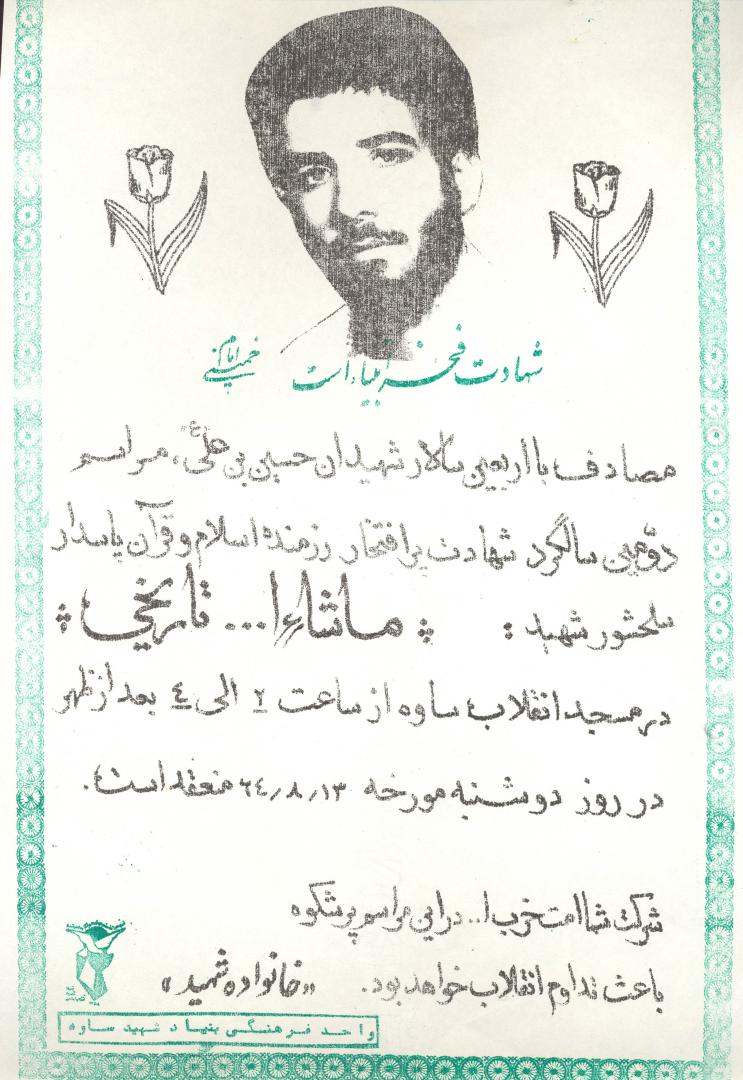 شهادت فخر انبیاء است امام خمینی
مصادف با اربعین سالار شهیدان حسین بن علی (ع)، مراسم
دوّمین سالگرد شهادت پرافتخار رزمنده اسلام و قرآن پاسدار
سلحشور شهید : ماشاءا... تاریخی
در مسجد انقلاب ساوه از ساعت ۲ الی ٤ بعد از ظهر
در روز دوشنبه مورخه ٦٤٫٨٫١٣ منعقد است.
شرکت شما امت حزب ا... در این مراسم پرشکوه
باعث تداوم انقلاب خواهد بود. «خانواده شهید»
واحد فرهنگی بنیاد شهید ساوه